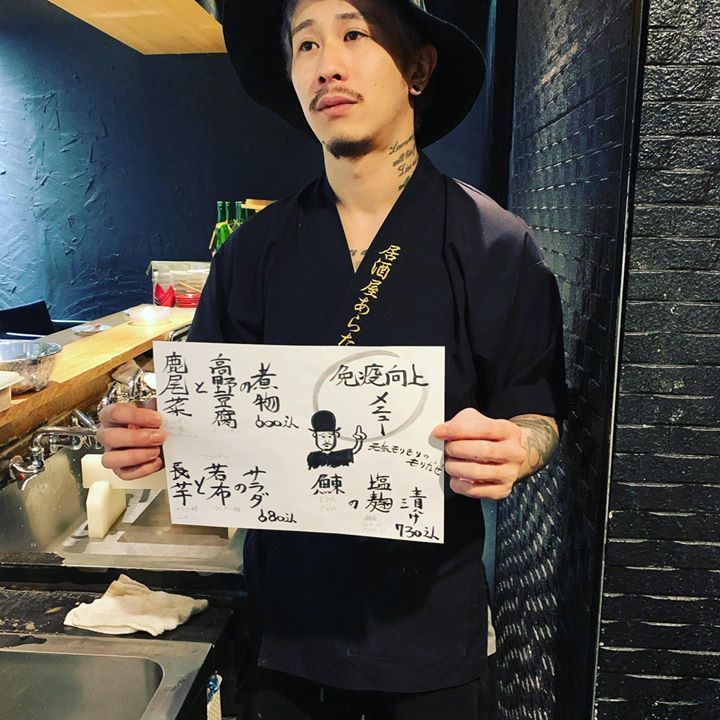 居酒屋あらた
免疫向上
メニュー
元気モリモリの
モリだぜ
鹿尾菜と高野豆腐の煮物
600えん
長芋と若布のサラダ
680えん
鰊の塩麹漬け
EPA
DHA
730えん